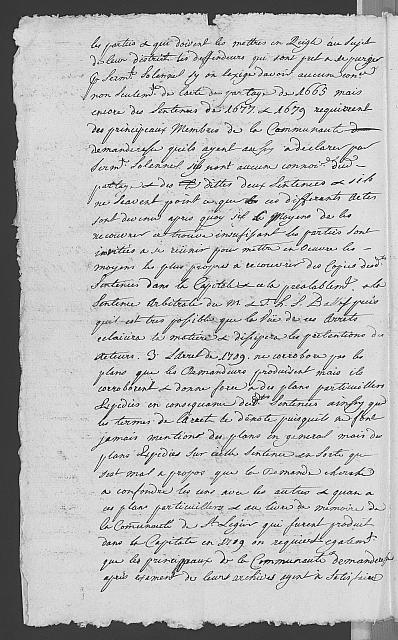 les parties & que doivent les mettre en Reigle au sujet
de leur district. les deffendeurs qui sont pret a se purger
p Serm.t Solennel sy on lexige davoir aucun con.ce
non seulem.t de l'acte de partage de 1665 mais
encore des Sentences de 1677 & 1679 requierent
des principaux Membres de la Communauté
demanderesse quils ayent aussy a declarer par
Serm.t Solennel sils nont aucun connois.ce du
partage & des dittes deux Sentences & sils
ne scavent point ce que ces differents Actes
sont devenus apres quoy si le Moyens de les
recouvrer se trouve insufisant les parties sont
invitées a se reünir pour mettre en oeuvre les
moyens les plus propres a recouvrer des Copies desd.tes
Sentences dans la Capitale & a la prealablem.t a la
Sentence Arbitrale du M. & T. h. S. puis
qu'il est tres possible que la Vüe de ces Arrets
eclaircira la matiere & dissipera les pretentions des
Acteurs. 3.° L'arret de 1709. ne corrobore pas les
plans que les Demandeurs produisent mais ils
corroborent & donne force a des plans particuilliers
Expediés en consequance desd.tes Sentences ainsy que
les termes de l'arrêt le denote puisquils ne font
jamais mentions des plans en general mais des
plans Expediés sur cette Sentence en sorte que
cest mal a propos que la Demande cherche
a confondre les uns avec les autres & quan a
ces plans particuilliers & au livre de mémoire de
la Comunauté de St Legier qui furent produit
dans la Capitale en 1709 on requiert egalem.t
que les principaux de la Communauté demanderesse
après examen de leurs archives ayent a satisfaire